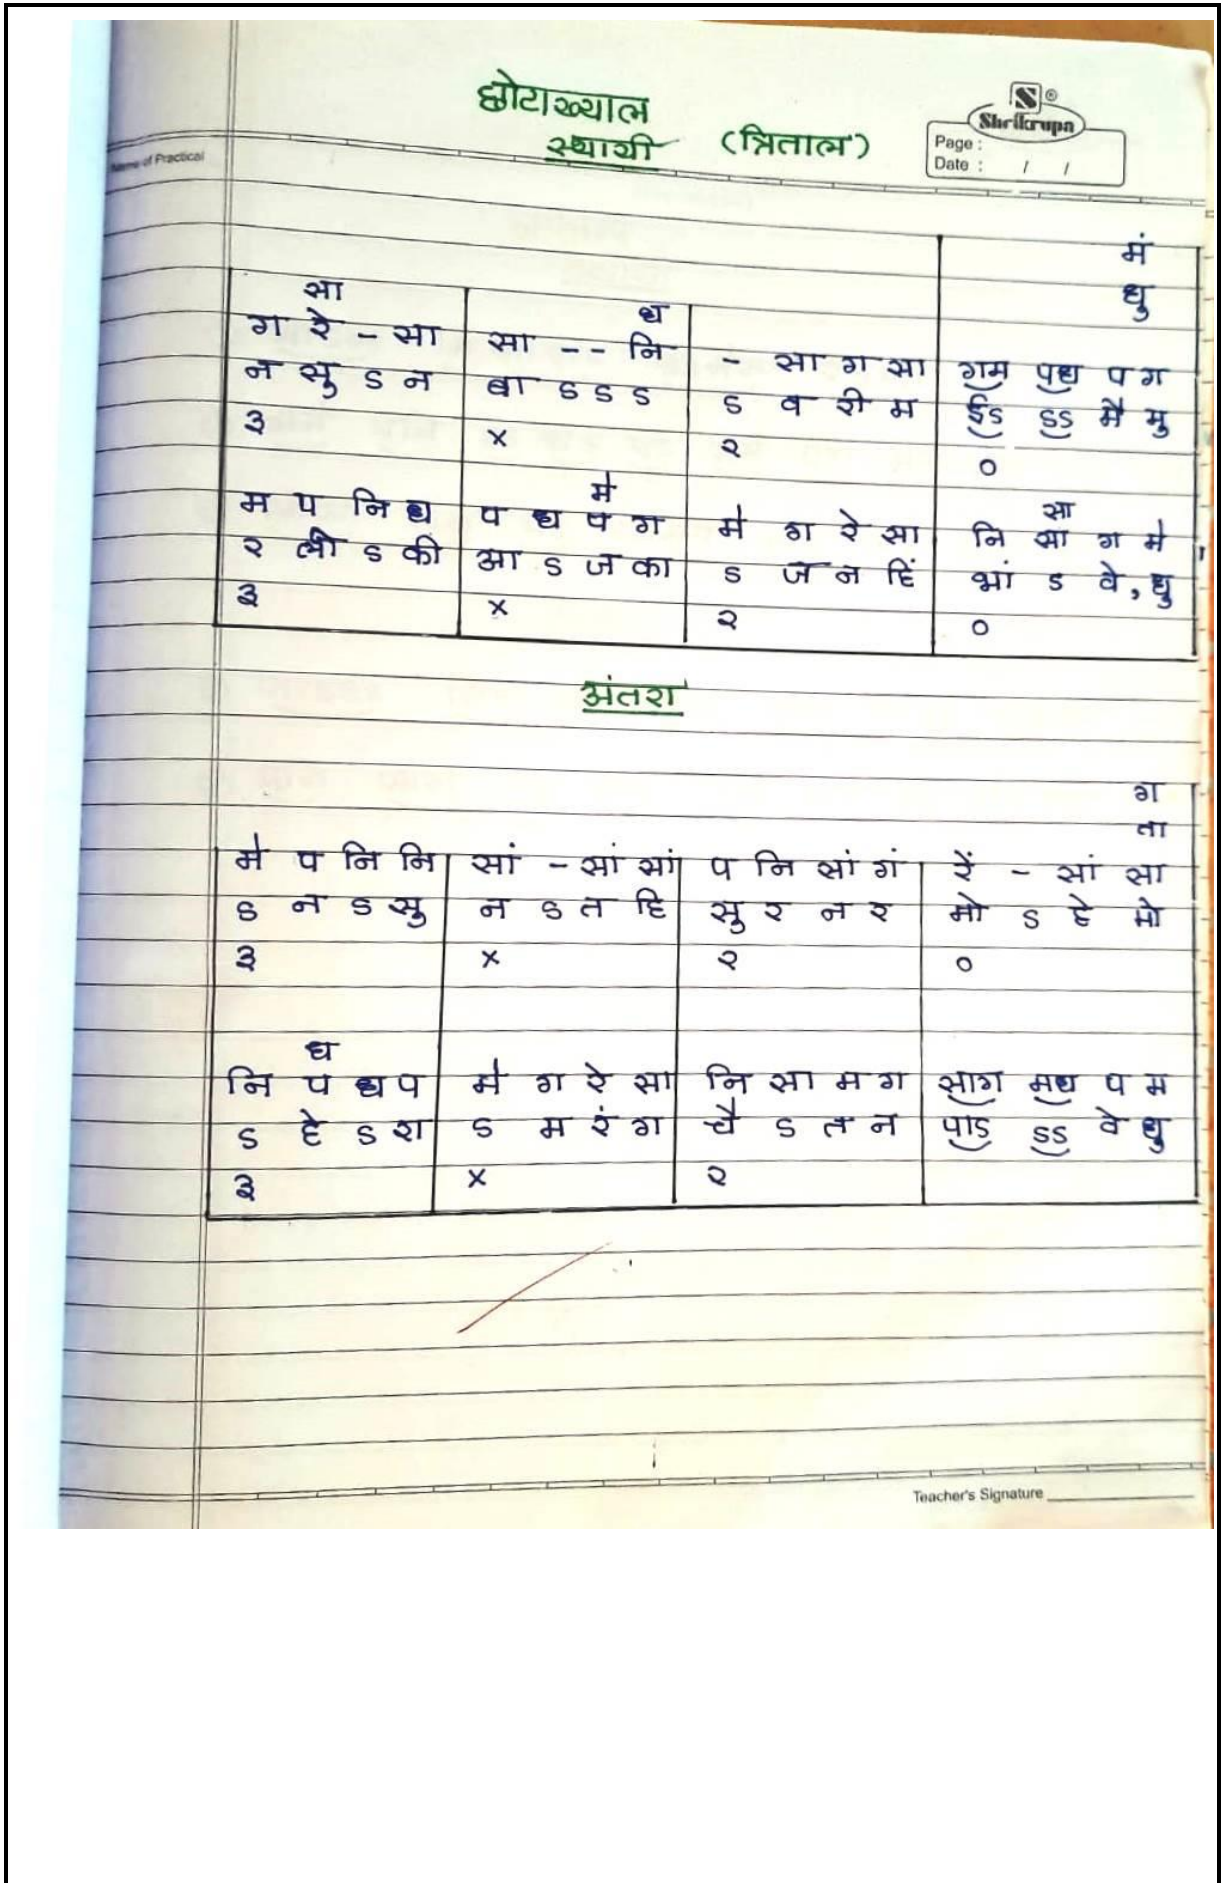 छोटाख्याल
स्थायी (त्रिताल)
S®
Shrikrupa
Page :
Date : / /
Name of Practical
मं
धु
सा ध
ग रे - सा सा - - नि - सा ग सा गम पध प ग
न सु ऽ न बा ऽ ऽ ऽ ऽ व री म ईऽ ऽऽ मै मु
३ × २ ०
मे सा
म प नि ध प ध प ग मे ग रे सा नि सा ग मे
र ली ऽ की आ ऽ ज का ऽ ज न हिं भां ऽ वे, धु
३ × २ ०
अंतरा
ग
ता
मे प नि नि सां - सां सां प नि सां गं रें - सां सा
ऽ न ऽ सु न ऽ त हि सु र न र मो ऽ हे मो
३ × २ ०
ध
नि प ध प मे ग रे सा नि सा म ग साग मध प म
ऽ हे ऽ रा ऽ म रं ग चै ऽ त न पाऽ ऽऽ वे धु
३ × २
Teacher's Signature